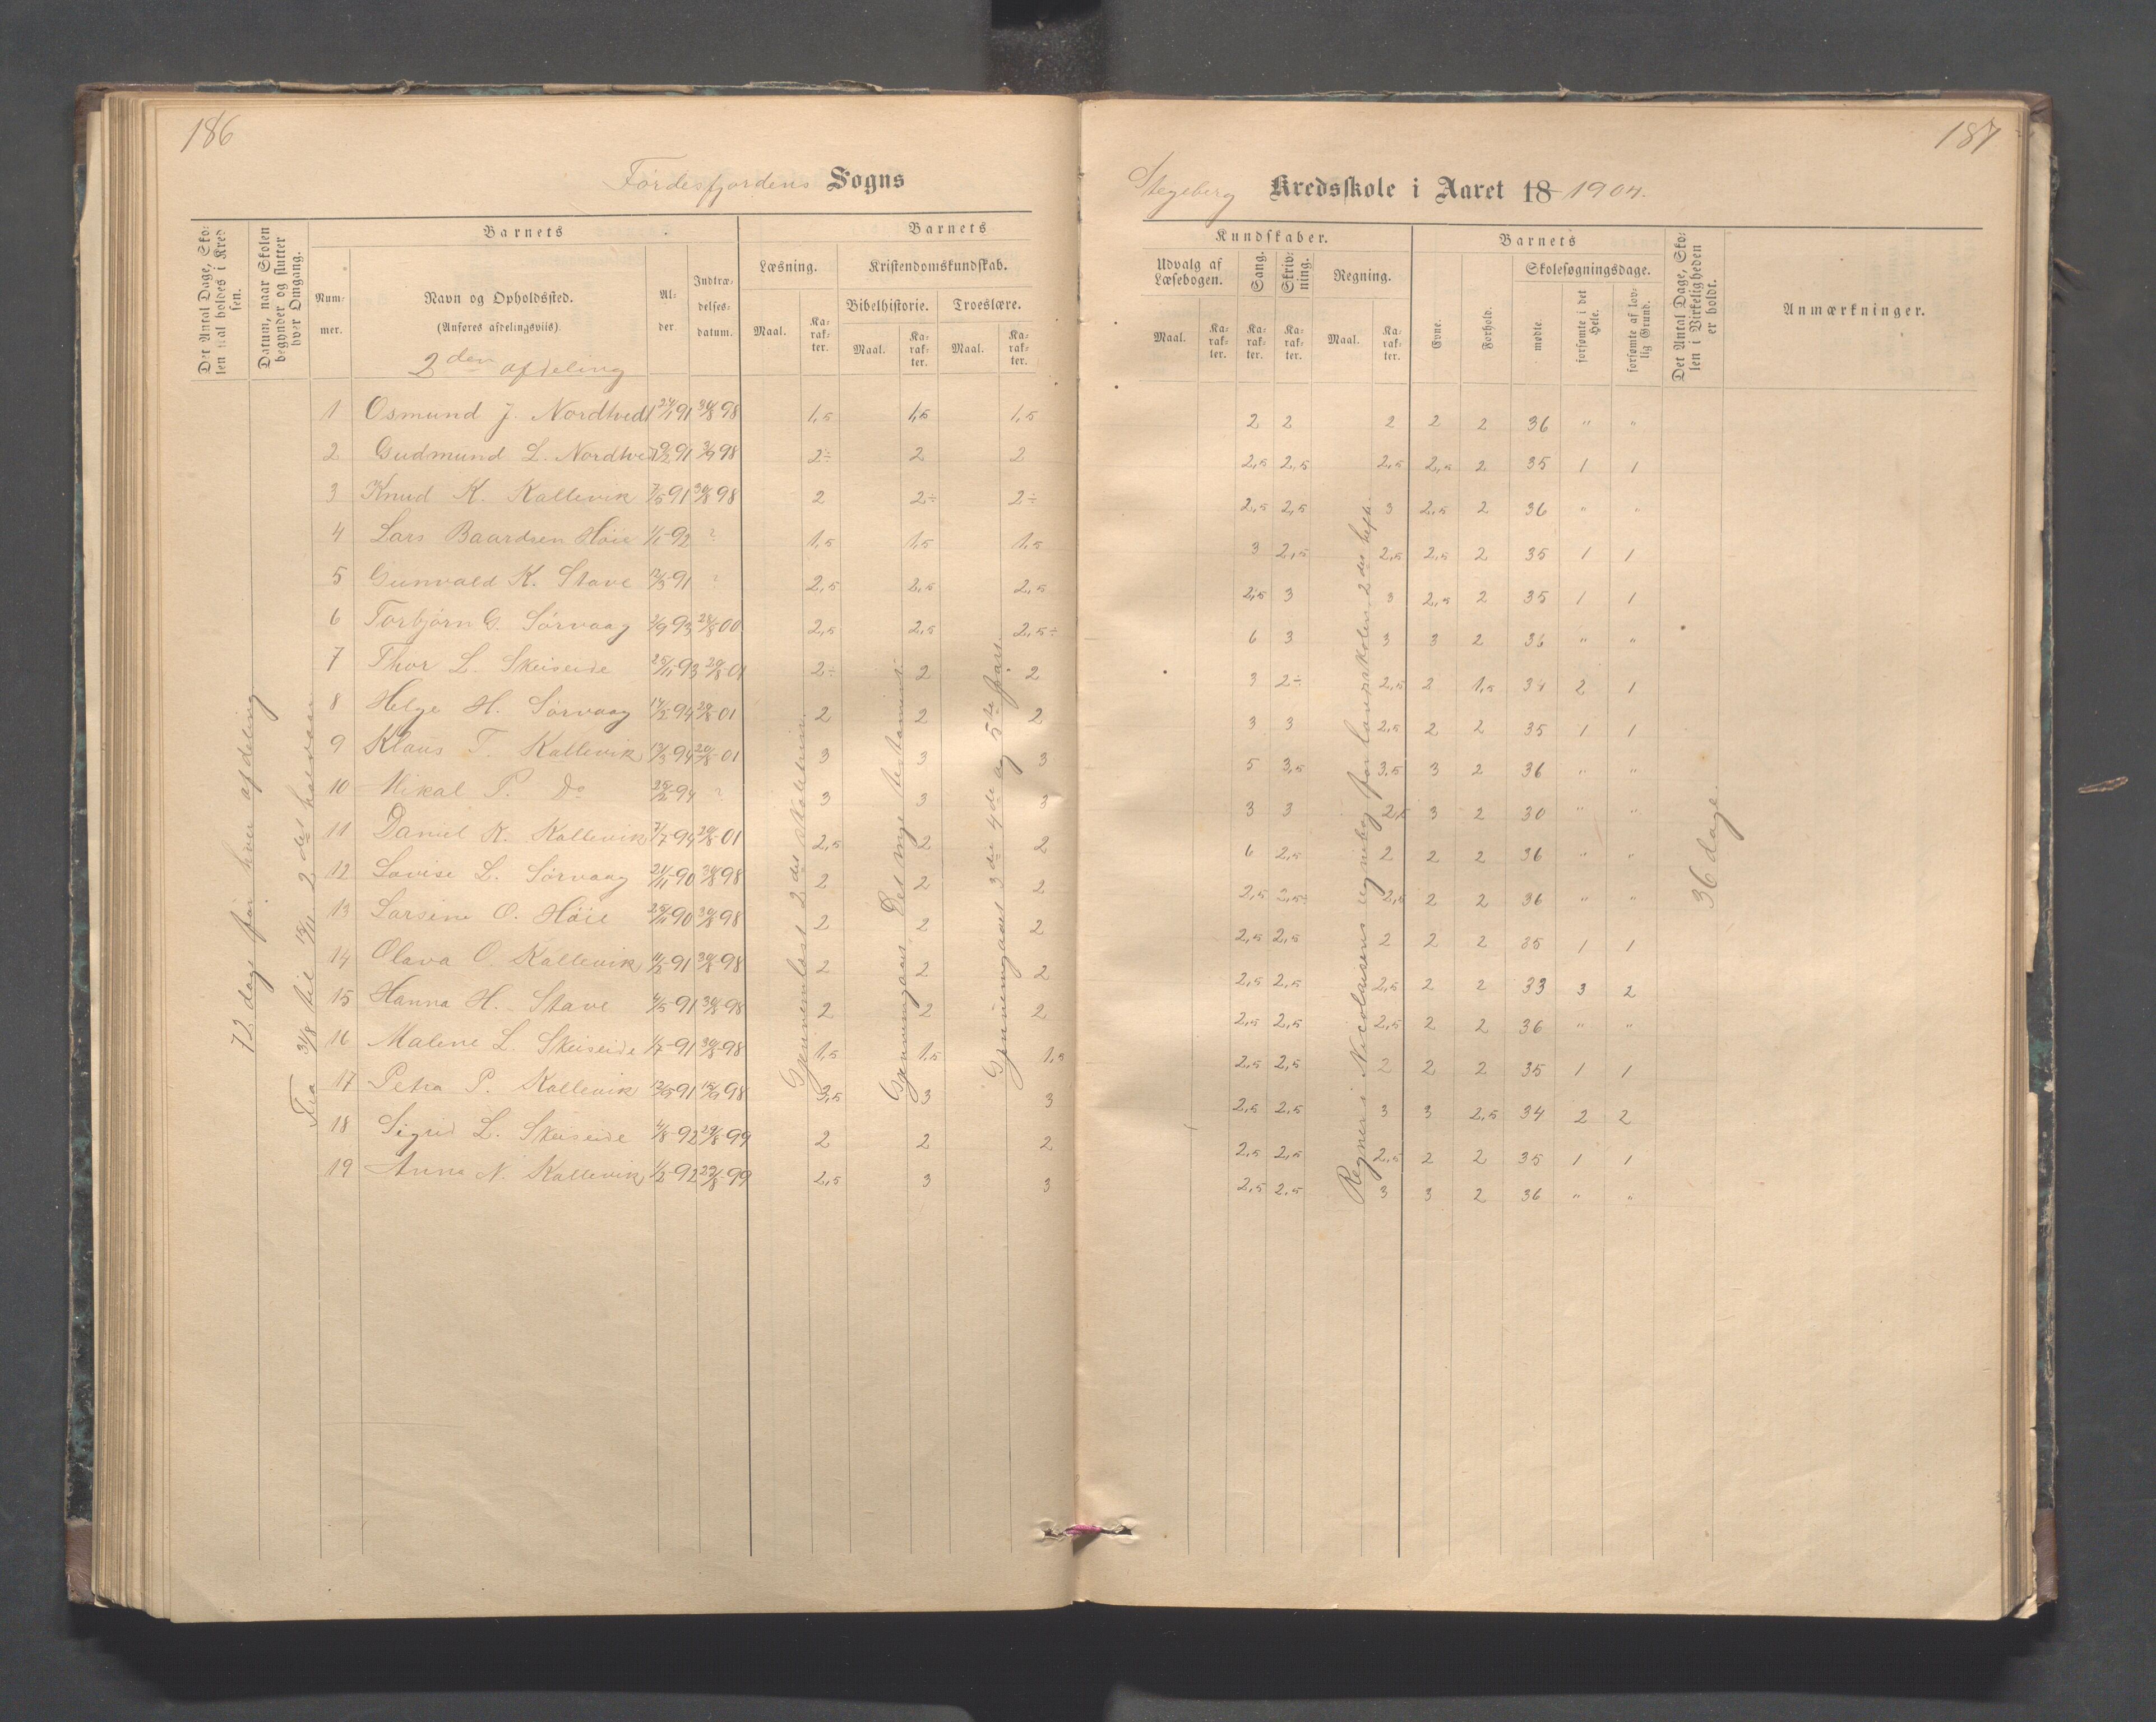 186
Fördesfjordens Sogns
Det Antal Dage, Skolen skal holdes i Kredsen.
Datum, naar Skolen begynder og slutter hver Omgang.
Barnets
Num-
mer.
Navn og Opholdssted.
(Anføres afdelingsviis).
Al-
der
Indtræ-
delses-
datum.
Læsning.
Maal.
Ka-
rak-
ter.
Barnets
Kristendomskundskab.
Bibelhistorie.
Troeslære.
Maal.
Ka-
rak-
ter.
Maal.
Ka-
rak-
ter.
2den afdeling
72 dage for hver afdeling
Fra 31/8 til 15/11 2det halvaar
Gjennemlæst 2det skoletrin
Gjennemgaaet Det nye testament
Gjennemgaaet 3die 4de og 5te part.
1 Osmund J. Nordtvedt 24/1 91 30/8 98 1,5 1,5 1,5
2 Gudmund L. Nordtve 91 98 2÷ 2 2
3 Knud K. Kallevik 7/5 91 30/8 98 2 2÷ 2÷
4 Lars Baardsen Höie 1/1-92 ? 1,5 1,5 1,5
5 Gunvald K. Stave 12/3-91 ? 2,5 2,5 2,5
6 Torbjörn G. Sörvaag 2/9 93 28/8 00 2,5 2,5 2,5÷
7 Thor L. Skeiseide 25/11-93 20/8-01 2÷ 2 2
8 Helge H. Sörvaag 94 20/8-01 2 2 2
9 Klaus T. Kallevik 13/3-94 20/8-01 3 3 3
10 Mikal P. Do 94 ? 3 3 3
11 Daniel K. Kallevik 7/7-94 20/8-01 2,5 2 2
12 Lovise L. Sörvaag 21/11-90 30/8 98 2 2 2
13 Larsine O. Höie 90 30/8-98 2 2 2
14 Olava O. Kallevik 91 30/8-98 2 2 2
15 Hanna H. Stave 91 30/8-98 2 2 2
16 Malene L. Skeiseide 1/7-91 30/8-98 1,5 1,5 1,5
17 Petra P. Kallevik 91 98 3,5 3 3
18 Sigrid L. Skeiseide 92 29/8-99 2 2 2
19 Anna N. Kallevik 1/2-92 29/8-99 2,5 3 3
187
Stegeberg Kredsskole i Aaret 18 1904.
Kundskaber.
Udvalg af
Læsebogen.
Maal.
Ka-
rak-
ter.
Sang.
Ka-
rak-
ter.
Skriv-
ning.
Ka-
rak-
ter.
Regning.
Maal.
Ka-
rak-
ter.
Barnets
Evne.
Forhold.
Skolesøgningsdage.
mødte.
forsømte i det Hele.
forsømte af lovlig Grund.
Det Antal Dage, Skolen i Virkeligheden er holdt.
Anmærkninger.
Regner i Nicolaisens regnebog for landsskolen 2det hefte.
36 dage.
2 2 2 2 2 36 " "
2,5 2,5 2,5 2,5 2 35 1 1
2,5 2,5 3 2,5 2 36 " "
3 2,5 2,5 2,5 2 35 1 1
2,5 3 3 2,5 2 35 1 1
6 3 3 3 2 36 " "
3 2÷ 2,5 2 1,5 34 2 1
3 3 2,5 2 2 35 1 1
5 3,5 3,5 3 2 36 " "
3 3 2,5 3 2 30 " "
6 2,5 2 2 2 36 " "
2,5 2,5÷ 2,5 2 2 36 " "
2,5 2,5 2 2 2 35 1 1
2,5 2,5 2,5 2 2 33 3 2
2,5 2,5 2,5 2 2 36 " "
2,5 2,5 2 2 2 35 1 1
2,5 2,5 3 3 2,5 34 2 2
2,5 2,5 2,5 2 2 35 1 1
2,5 2,5 3 3 2 36 " "